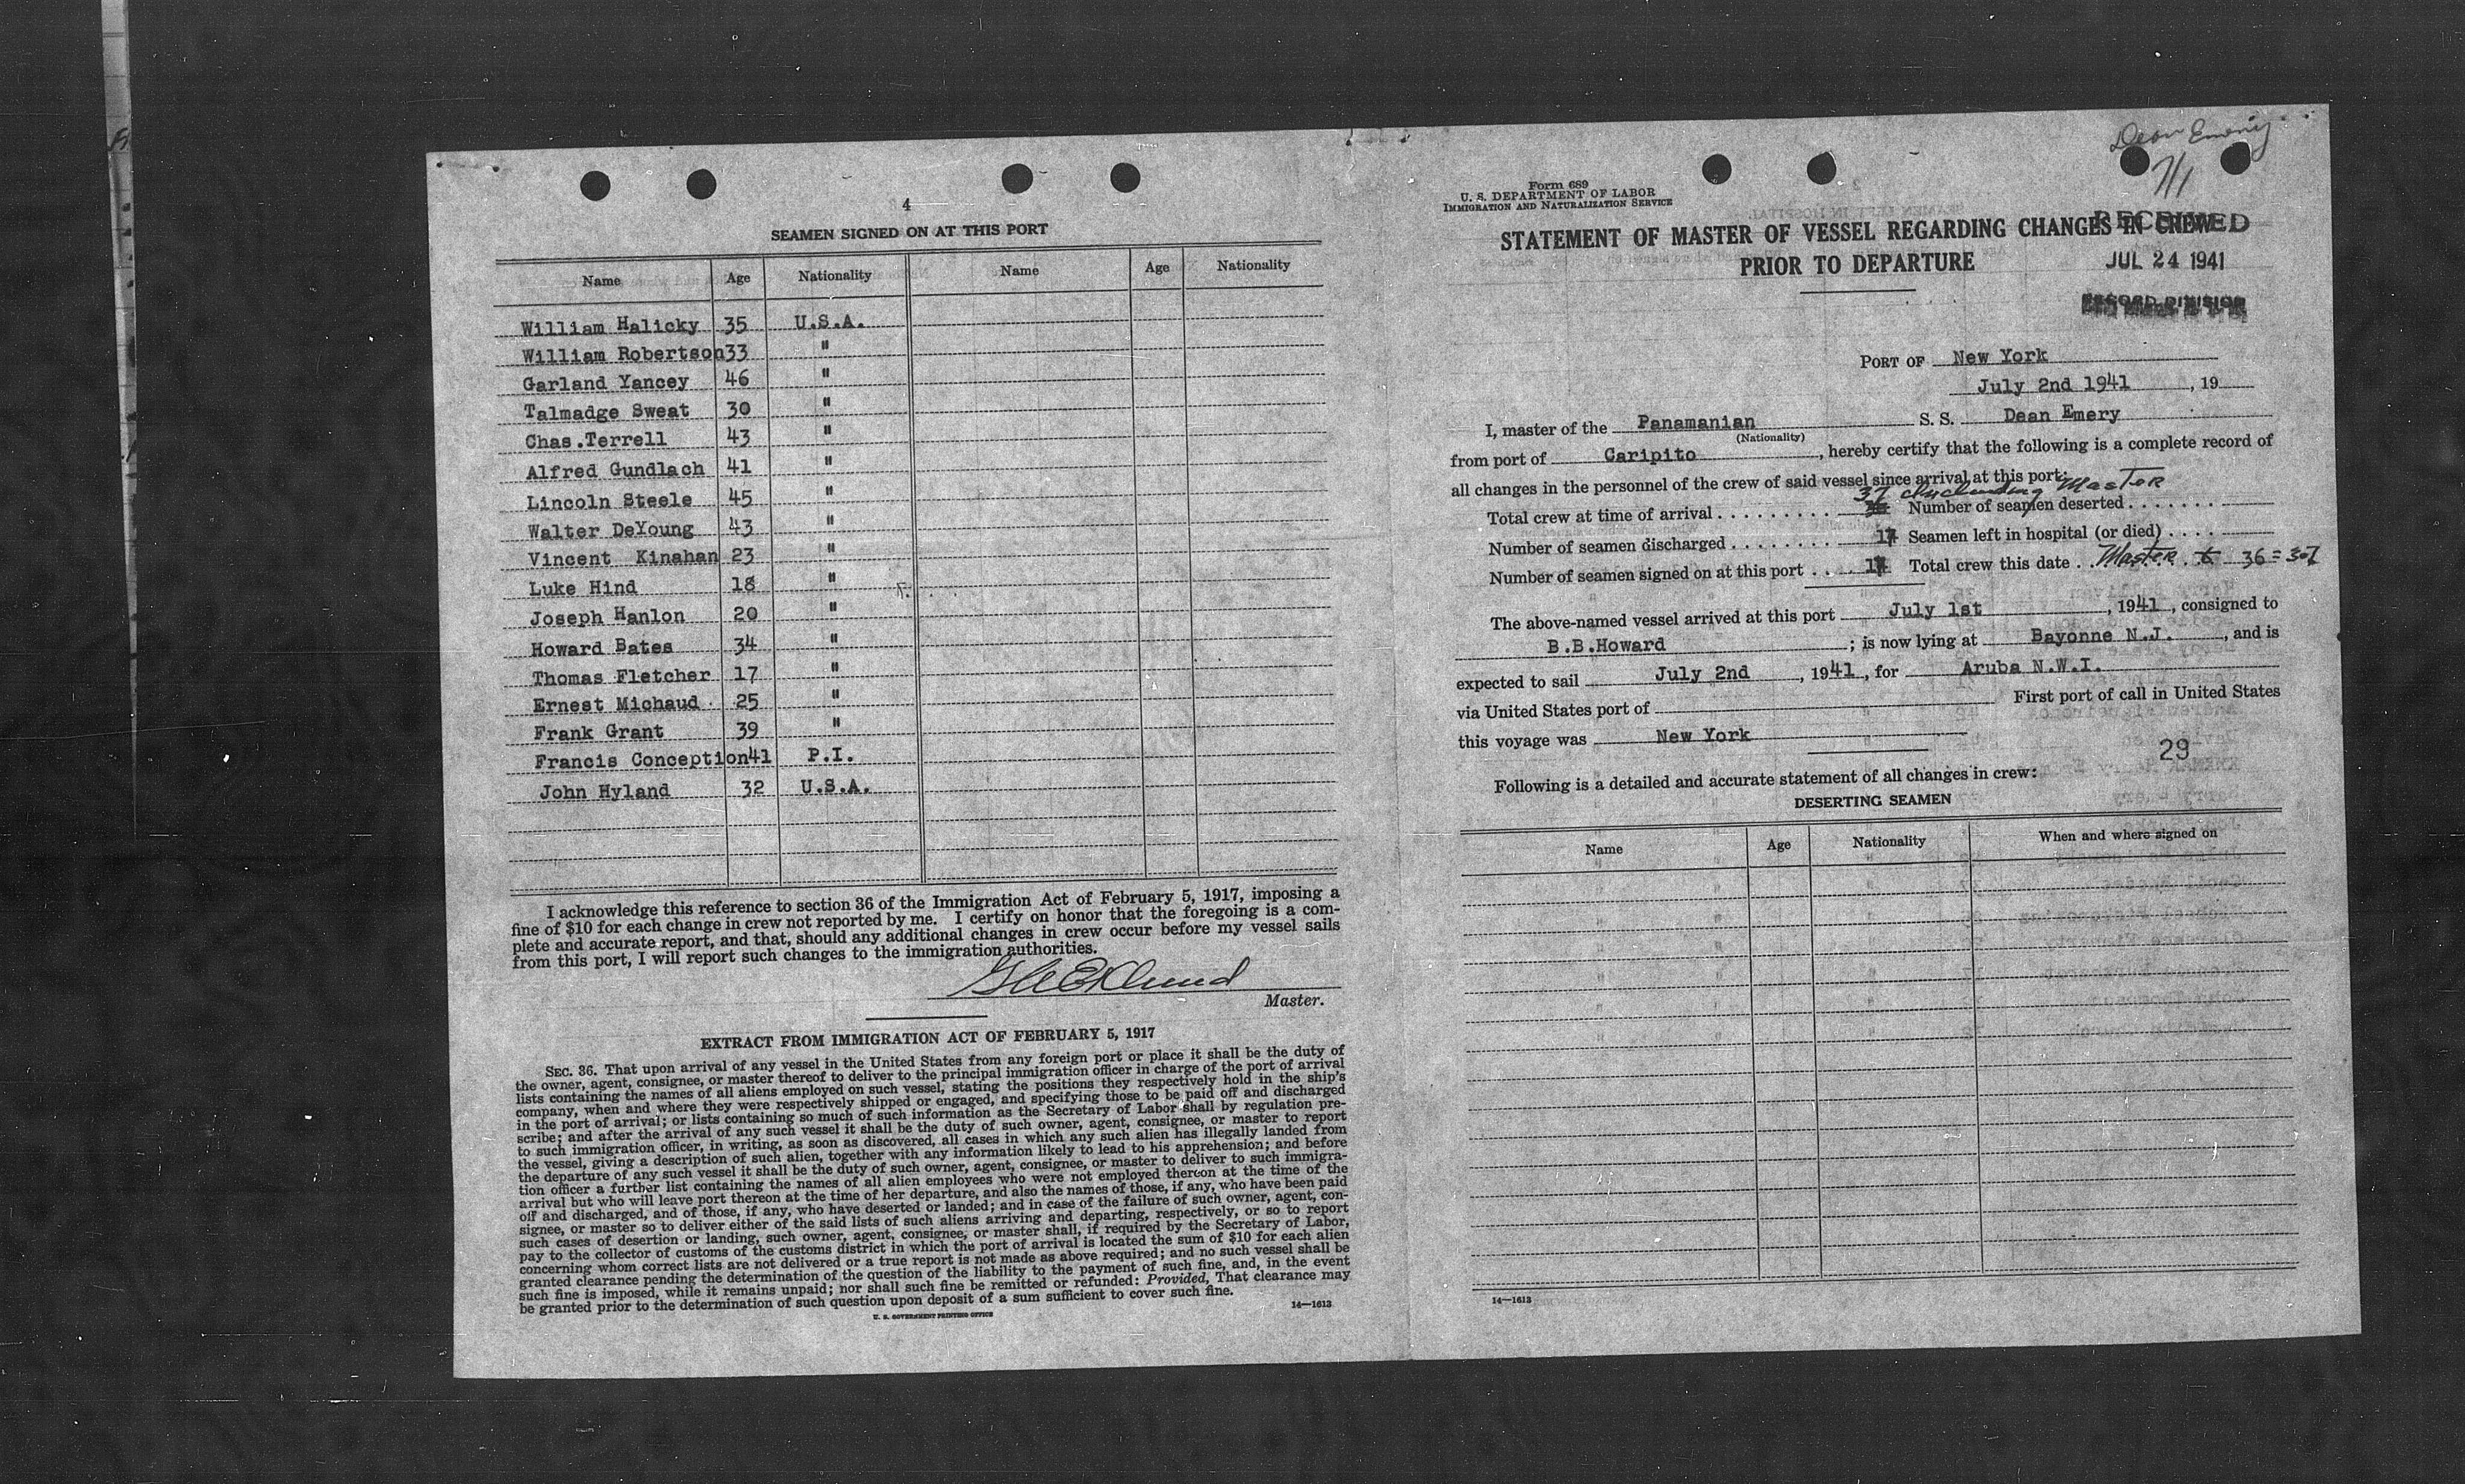 4
SEAMEN SIGNED ON AT THIS PORT
Name Age Nationality Name Age Nationality
William Halicky 35 U.S.A.
William Robertson 33 "
Garland Yancey 46 "
Talmadge Sweat 30 "
Chas.Terrell 43 "
Alfred Gundlach 41 "
Lincoln Steele 45 "
Walter DeYoung 43 "
Vincent Kinahan 23 "
Luke Hind 18 "
Joseph Hanlon 20 "
Howard Bates 34 "
Thomas Fletcher 17 "
Ernest Michaud 25 "
Frank Grant 39 "
Francis Conception 41 P.I.
John Hyland 32 U.S.A.
I acknowledge this reference to section 36 of the Immigration Act of February 5, 1917, imposing a
fine of $10 for each change in crew not reported by me. I certify on honor that the foregoing is a com-
plete and accurate report, and that, should any additional changes in crew occur before my vessel sails
from this port, I will report such changes to the immigration authorities.
Master.
EXTRACT FROM IMMIGRATION ACT OF FEBRUARY 5, 1917
SEC. 36. That upon arrival of any vessel in the United States from any foreign port or place it shall be the duty of
the owner, agent, consignee, or master thereof to deliver to the principal immigration officer in charge of the port of arrival
lists containing the names of all aliens employed on such vessel, stating the positions they respectively hold in the ship's
company, when and where they were respectively shipped or engaged, and specifying those to be paid off and discharged
in the port of arrival; or lists containing so much of such information as the Secretary of Labor shall by regulation pre-
scribe; and after the arrival of any such vessel it shall be the duty of such owner, agent, consignee, or master to report
to such immigration officer, in writing, as soon as discovered, all cases in which any such alien has illegally landed from
the vessel, giving a description of such alien, together with any information likely to lead to his apprehension; and before
the departure of any such vessel it shall be the duty of such owner, agent, consignee, or master to deliver to such immigra-
tion officer a further list containing the names of all alien employees who were not employed thereon at the time of the
arrival but who will leave port thereon at the time of her departure, and also the names of those, if any, who have been paid
off and discharged, and of those, if any, who have deserted or landed; and in case of the failure of such owner, agent, con-
signee, or master so to deliver either of the said lists of such aliens arriving and departing, respectively, or so to report
such cases of desertion or landing, such owner, agent, consignee, or master shall, if required by the Secretary of Labor,
pay to the collector of customs of the customs district in which the port of arrival is located the sum of $10 for each alien
concerning whom correct lists are not delivered or a true report is not made as above required; and no such vessel shall be
granted clearance pending the determination of the question of the liability to the payment of such fine, and, in the event
such fine is imposed, while it remains unpaid; nor shall such fine be remitted or refunded: Provided, That clearance may
be granted prior to the determination of such question upon deposit of a sum sufficient to cover such fine.
U. S. GOVERNMENT PRINTING OFFICE 14—1613
Dean Emery
7/1
Form 689
U. S. DEPARTMENT OF LABOR
IMMIGRATION AND NATURALIZATION SERVICE
STATEMENT OF MASTER OF VESSEL REGARDING CHANGES IN CREW
PRIOR TO DEPARTURE
RECEIVED
JUL 24 1941
RECORD DIVISION
PORT OF New York
July 2nd 1941, 19
I, master of the Panamanian S. S. Dean Emery
(Nationality)
from port of Caripito, hereby certify that the following is a complete record of
all changes in the personnel of the crew of said vessel since arrival at this port:
37 including Master
Total crew at time of arrival Number of seamen deserted
Number of seamen discharged 17 Seamen left in hospital (or died)
Number of seamen signed on at this port 17 Total crew this date Master & 36 = 37
The above-named vessel arrived at this port July 1st, 1941, consigned to
B.B.Howard; is now lying at Bayonne N.J., and is
expected to sail July 2nd, 1941, for Aruba N.W.I.
via United States port of First port of call in United States
this voyage was New York
29
Following is a detailed and accurate statement of all changes in crew:
DESERTING SEAMEN
Name Age Nationality When and where signed on
14—1613